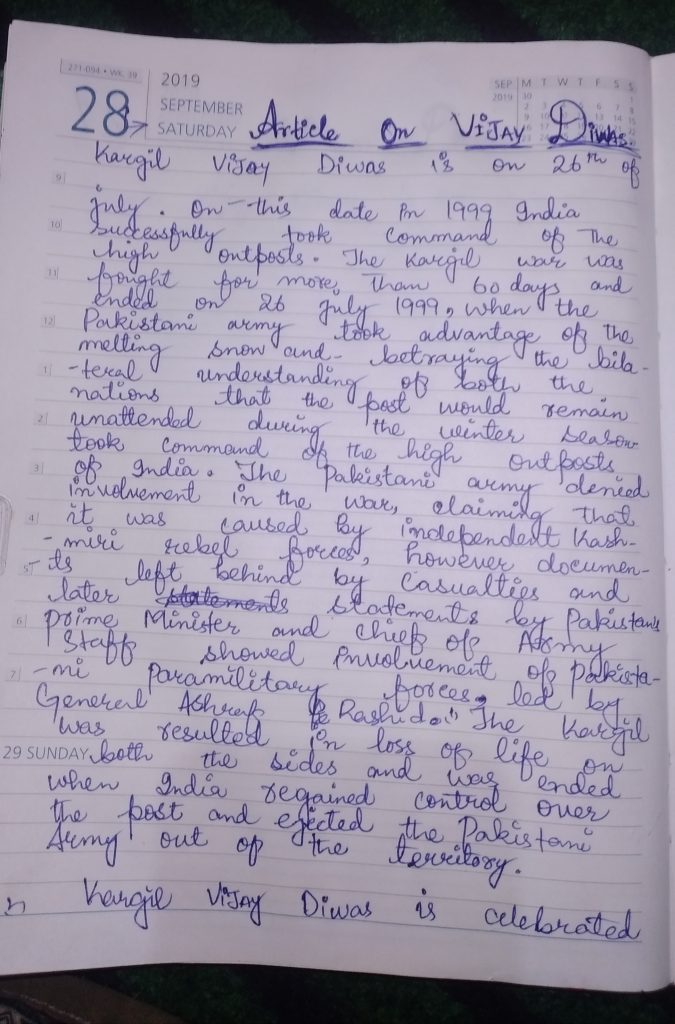 271-094 • WK. 39
28
2019
SEPTEMBER
SATURDAY
SEP 2019 M T W T F S S
Article On VIJAY DIWAS
Kargil VIJAY Diwas is on 26th of
9
july. On this date in 1999 India
10
successfully took command of The
high outposts. The Kargil war was
11
fought for more, Than 60 days and
ended on 26 july 1999, when the
12
Pakistani army took advantage of the
melting snow and- betraying the bila-
1
-teral understanding of both the
nations that the post would remain
2
unattended during the winter season
took command of the high outposts
3
of India. The Pakistani army denied
involvement in the war, claiming that
4
it was caused by independent Kash-
-miri rebel forces, however documen-
5
-ts left behind by casualties and
later statements statements by Pakistan's
6
prime Minister and chief of Army
Staff showed involvement of pakista-
7
-ni paramilitary forces, led by
General Ashraf Rashid. The Kargil
was resulted in loss of life on
29 SUNDAY both the sides and was ended
when India regained control over
the post and ejected the Pakistani
Army out of the territory.
Kargil VIJAY Diwas is celebrated